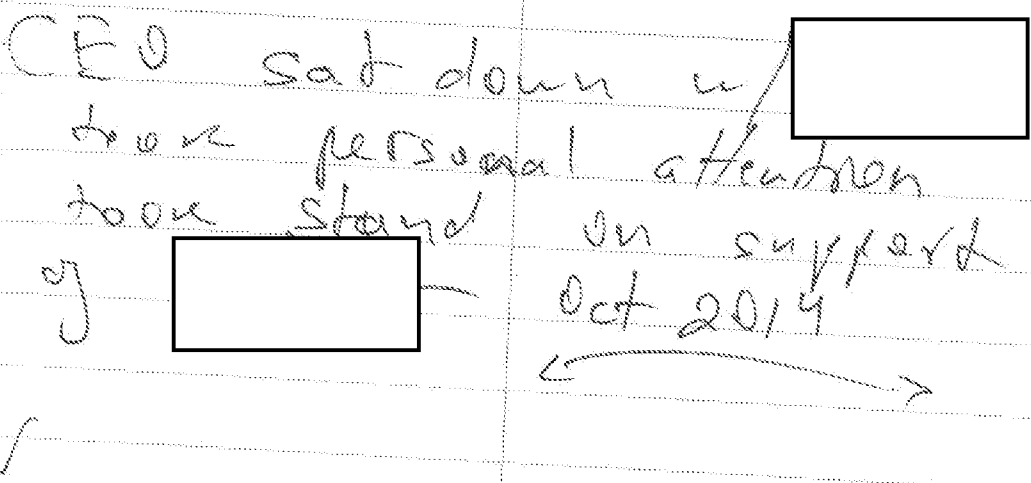 CEO sat down w/
took personal attention
took stand in support
of — Oct 2014